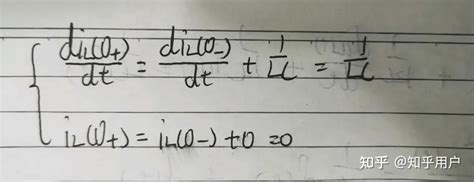 di_L(0+)/dt = di_L(0-)/dt + 1/LC = 1/LC
i_L(0+) = i_L(0-) + 0 = 0
知乎 @知乎用户